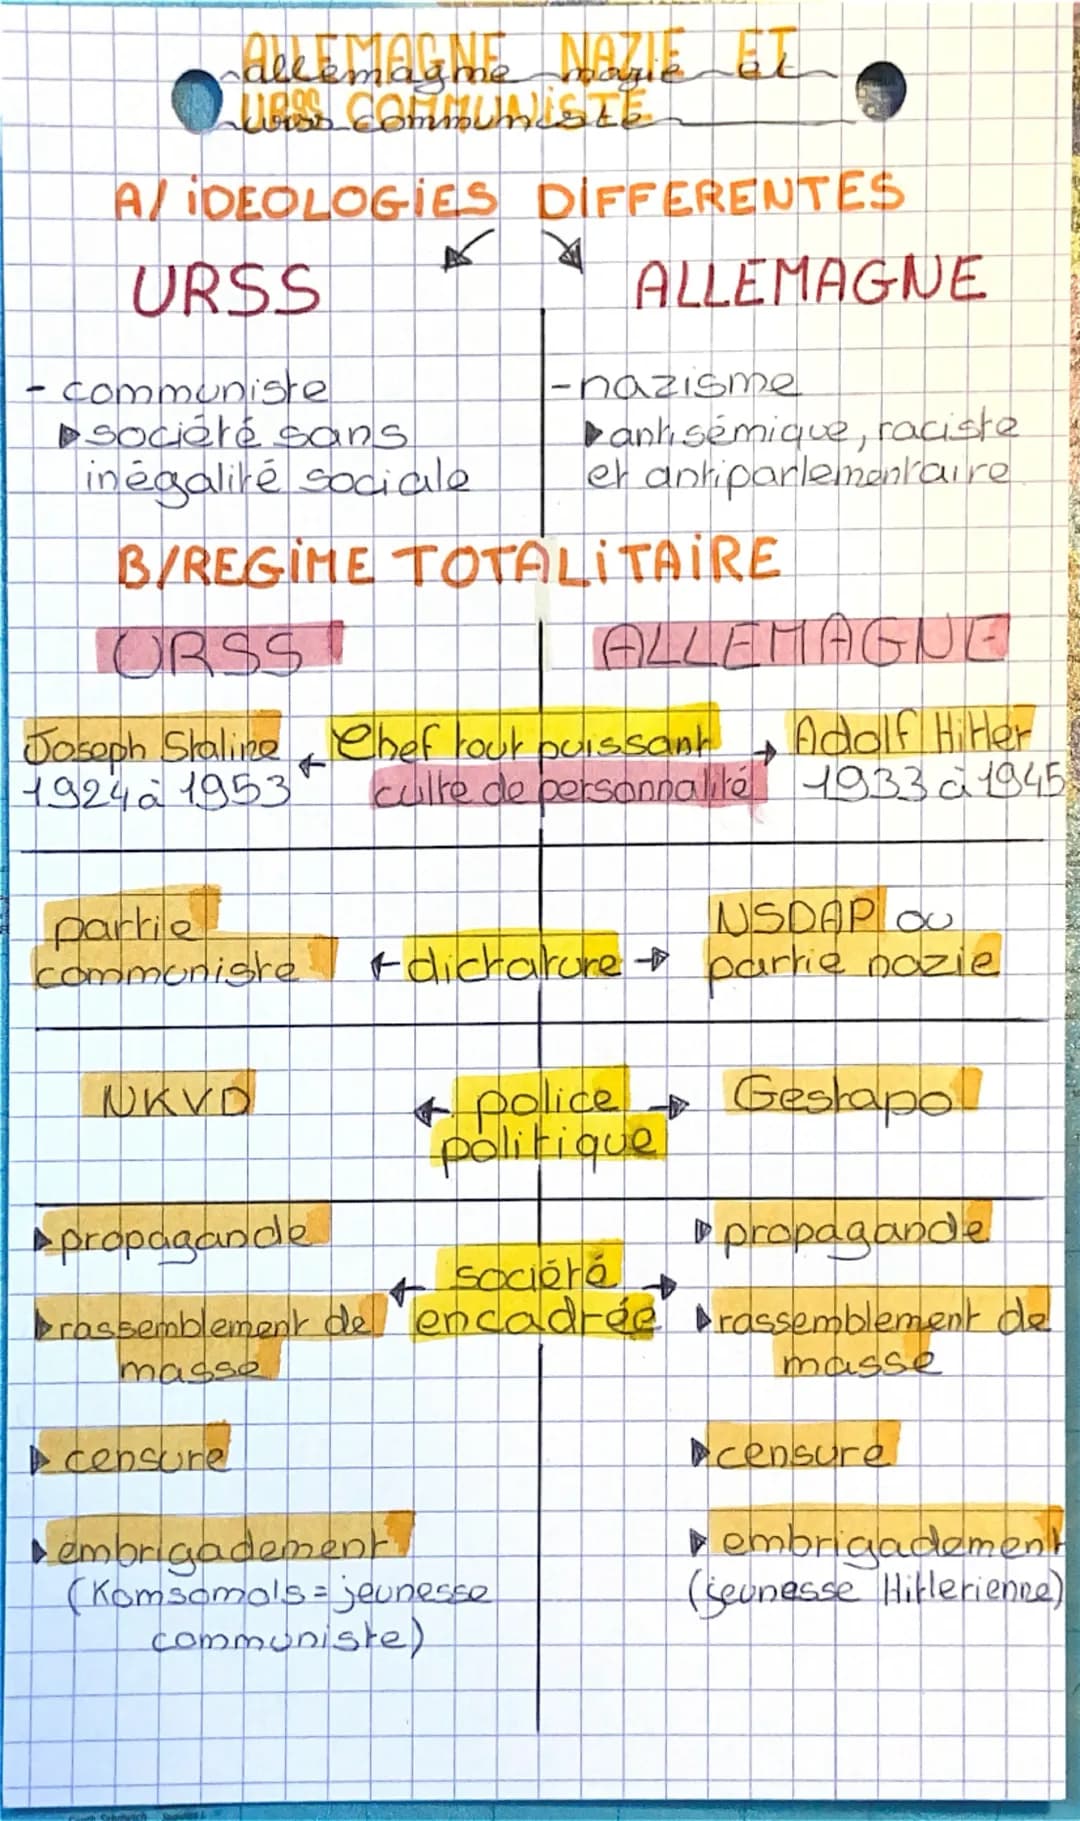 ALLEMAGNE NAZIE ET
allemagne nazie et
URSS COMMUNISTE
urss communiste
A/ IDEOLOGIES DIFFERENTES
URSS
ALLEMAGNE
- communiste
société sans
inégalité sociale
-nazisme
antisémique, raciste
et antiparlementaire
B/REGIME TOTALITAIRE
URSS
ALLEMAGNE
Joseph Staline
1924 à 1953
Chef tout puissant
culte de personnalité
Adolf Hitler
1933 à 1945
partie
communiste
dictature
NSDAP ou
partie nazie
NKVD
police
politique
Gestapo
propagande
rassemblement de
masse
censure
embrigadement
(Komsomols = jeunesse
communiste)
société
encadrée
propagande
rassemblement de
masse
censure
embrigadement
(jeunesse Hitlerienne)